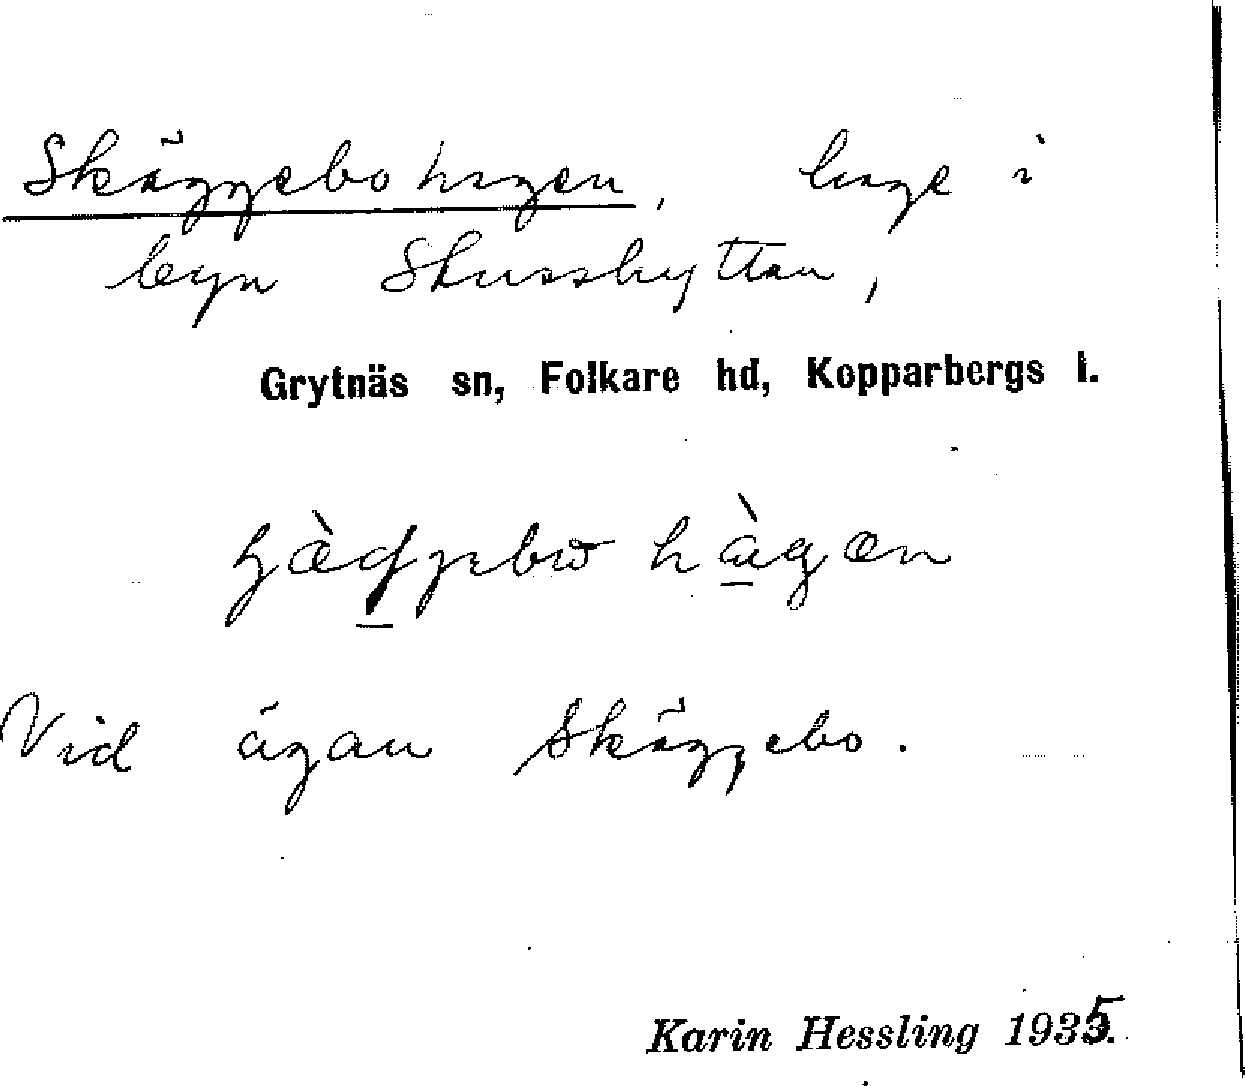 Skäggebohagen, hage i
byn Skusshyttan,
Grytnäs sn, Folkare hd, Kopparbergs l.
Vid ägan Skäggebo.
Karin Hessling 1935.